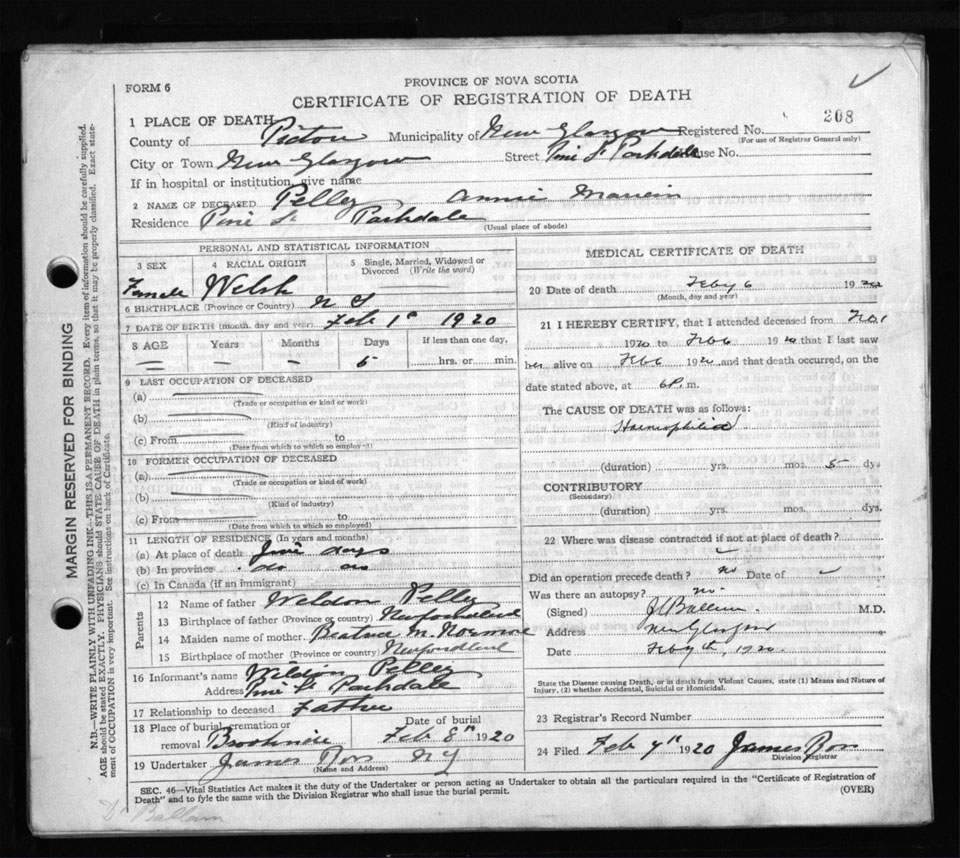 FORM 6
PROVINCE OF NOVA SCOTIA
CERTIFICATE OF REGISTRATION OF DEATH
208
1 PLACE OF DEATH
County of Pictou Municipality of New Glasgow Registered No.
(For use of Registrar General only)
City or Town New Glasgow Street Pine St Parkdale House No.
If in hospital or institution, give name
2 NAME OF DECEASED Pelley Annie
Residence Pine St Parkdale
(Usual place of abode)
PERSONAL AND STATISTICAL INFORMATION
3 SEX 4 RACIAL ORIGIN 5 Single, Married, Widowed or Divorced (Write the word)
Female Welsh
6 BIRTHPLACE (Province or Country) N S
7 DATE OF BIRTH (month, day and year) Feb 1st 1920
8 AGE Years Months Days If less than one day,
— — 5 hrs. or min.
9 LAST OCCUPATION OF DECEASED
(a)
(Trade or occupation or kind or work)
(b)
(Kind of industry)
(c) From to
(Date from which to which so employed)
10 FORMER OCCUPATION OF DECEASED
(a)
(Trade or occupation or kind of work)
(b)
(Kind of industry)
(c) From to
(Date from which to which so employed)
11 LENGTH OF RESIDENCE (In years and months)
(a) At place of death days
(b) In province do do
(c) In Canada (if an immigrant)
Parents
12 Name of father Weldon Pelley
13 Birthplace of father (Province or country) Newfoundland
14 Maiden name of mother Beatrice M.
15 Birthplace of mother (Province or country) Newfoundland
16 Informant's name Weldon Pelley
Address Pine St Parkdale
17 Relationship to deceased Father
18 Place of burial, cremation or removal Date of burial
Brookside Feb 8th 1920
19 Undertaker James Ross N G
(Name and Address)
MEDICAL CERTIFICATE OF DEATH
20 Date of death Feby 6 1920
(Month, day and year)
21 I HEREBY CERTIFY, that I attended deceased from Feb 1
1920 to Feb 6 1920 that I last saw
her alive on Feb 6 1920, and that death occurred, on the
date stated above, at 6 P. m.
The CAUSE OF DEATH was as follows:
Haemophilia
(duration) yrs. mos. 5 dys
CONTRIBUTORY
(Secondary)
(duration) yrs. mos. dys.
22 Where was disease contracted if not at place of death?
Did an operation precede death? no Date of
Was there an autopsy? no.
(Signed) M.D.
Address New Glasgow
Date Feby 7th, 1920.
State the Disease causing Death, or in death from Violent Causes, state (1) Means and Nature of
Injury, (2) whether Accidental, Suicidal or Homicidal.
23 Registrar's Record Number
24 Filed Feb 7th 1920 James Ross
Division Registrar
SEC. 46—Vital Statistics Act makes it the duty of the Undertaker or person acting as Undertaker to obtain all the particulars required in the "Certificate of Registration of
Death" and to fyle the same with the Division Registrar who shall issue the burial permit. (OVER)
MARGIN RESERVED FOR BINDING
N.B.—WRITE PLAINLY WITH UNFADING INK—THIS IS A PERMANENT RECORD. Every item of information should be carefully supplied.
AGE should be stated EXACTLY. PHYSICIANS should STATE CAUSE OF DEATH in plain terms, so that it may be properly classified. Exact statement
of OCCUPATION is very important. See instructions on back of Certificate.